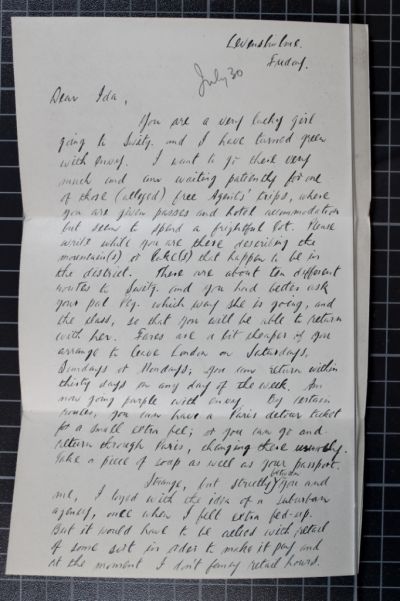 Levenshulme.
Friday.
July 30
Dear Ida,
You are a very lucky girl
going to Switz. and I have turned green
with envy. I want to go there very
much and am waiting patiently for one
of those (alleged) free Agents' trips, where
you are given passes and hotel accommodation
but seem to spend a frightful lot. Please
write while you are there describing the
mountain(s) or lake(s) that happen to be in
the district. There are about ten different
routes to Switz. and you had better ask
your pal Peg. which way she is going, and
the class, so that you will be able to return
with her. Fares are a bit cheaper if you
arrange to leave London on Saturdays,
Sundays or Mondays; you can return within
thirty days on any day of the week. Am
now going purple with envy. By certain
routes, you can have a Paris detour ticket
for a small extra fee; or you can go and
return through Paris, changing there
Take a piece of soap as well as your passport.
Strange, but strictly between you and
me, I toyed with the idea of a suburban
agency, once when I felt extra fed-up.
But it would have to be allied with retail
of some sort in order to make it pay and
at this moment I don't fancy retail hours.